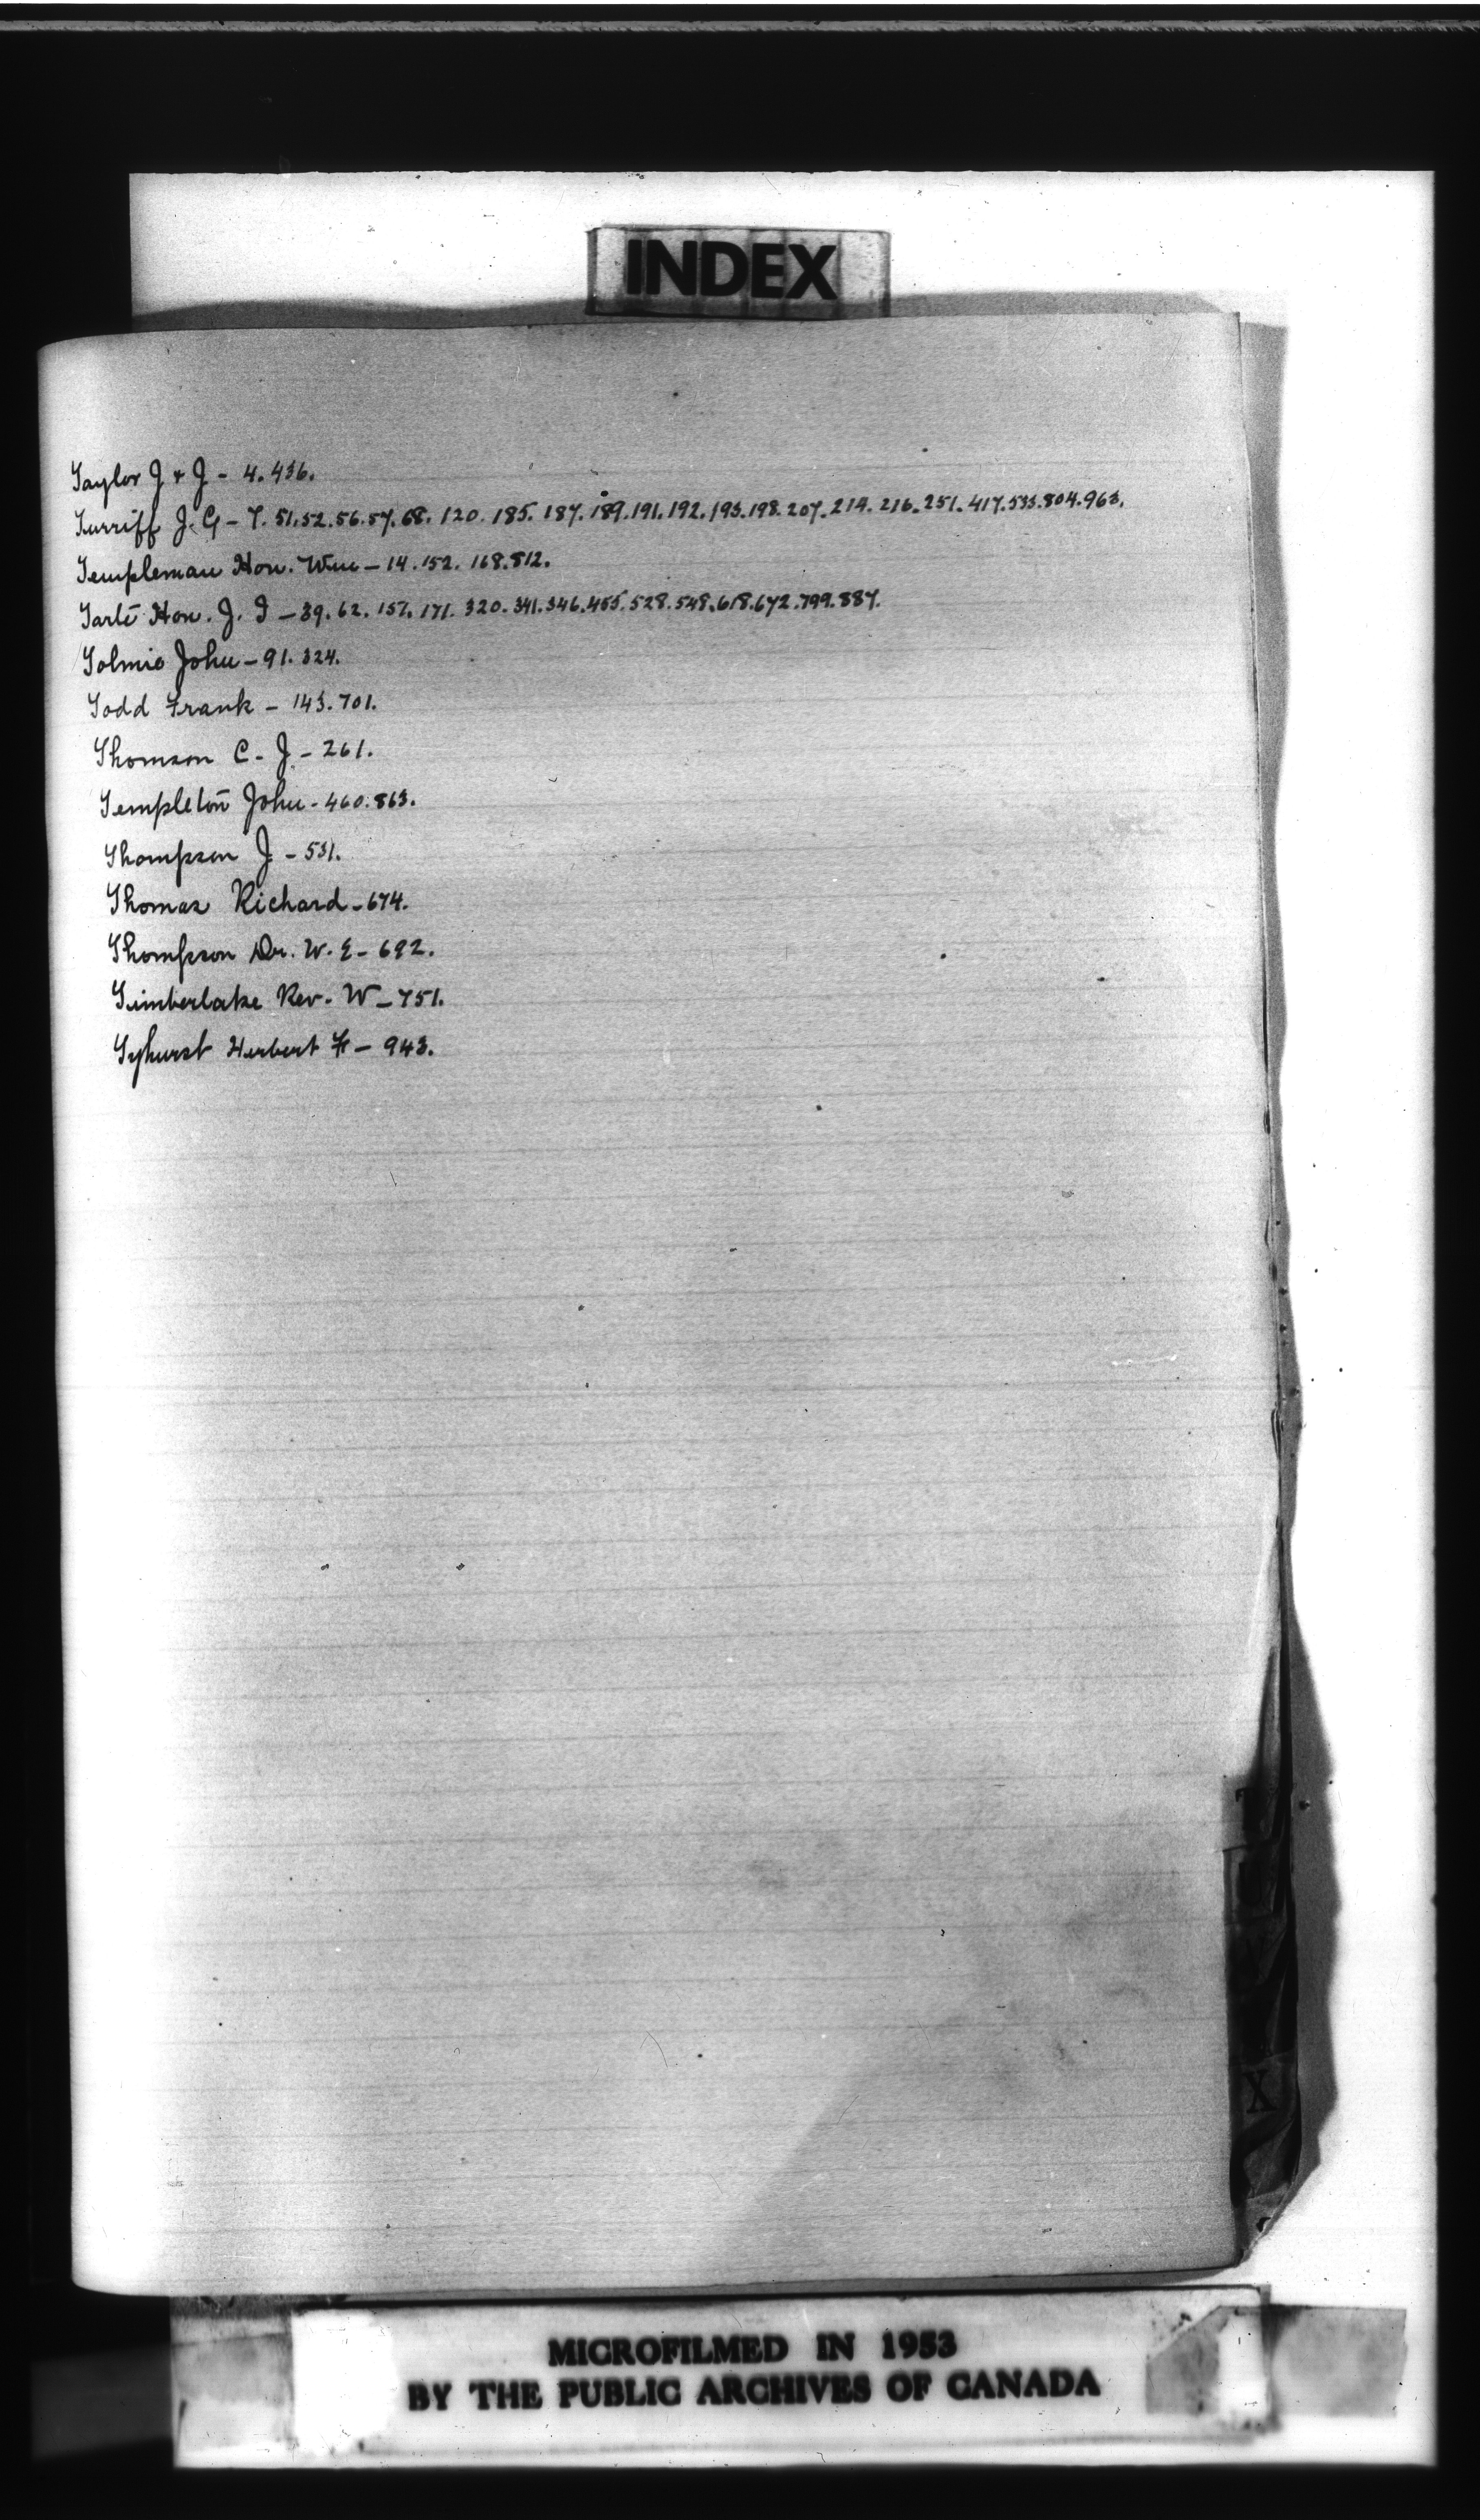 INDEX
Taylor J & J - 4. 436.
Turriff J. G - 7. 51. 52. 56. 57. 68. 120. 185. 187. 189. 191. 192. 193. 198. 207. 214. 216. 251. 417. 533. 804. 963.
Templeman Hon. Wm - 14. 152. 168. 812.
Tarte Hon. J. I - 39. 62. 157. 171. 320. 341. 346. 455. 528. 548. 618. 672. 799. 887.
Tolmie John - 91. 324.
Todd Frank - 143. 701.
Thomson C. J. - 261.
Templeton John - 460. 863.
Thompson J - 531.
Thomas Richard - 674.
Thompson Dr. W. E - 692.
Timberlake Rev. W - 751.
Tyhurst Herbert F - 943.
T
U
X
MICROFILMED IN 1953
BY THE PUBLIC ARCHIVES OF CANADA